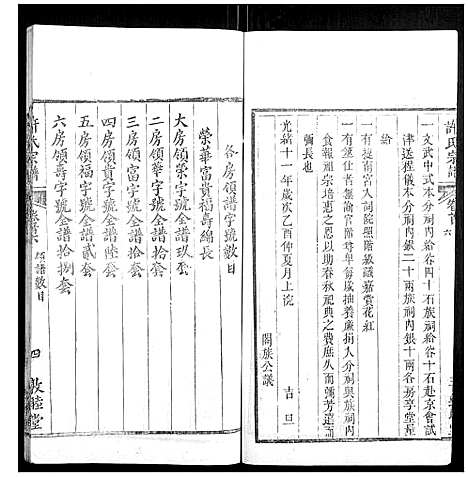 許氏宗譜
卷首
六
一文武中式本分祠給谷四十石族祠給谷十石赴京會試
津送程儀本分祠內銀二十兩族祠內銀十兩房亭堂
給
一有捷南宮入詞院照階級議嘉賞花紅
一有筮仕若游宦官階或崇卑抽養廉捐入本分祠與族祠
食報祖宗培惠之恩以助春秋祀典之費庶久而彌芳遠而
彌長也
光緒十一年歲次乙酉仲夏月上浣 吉旦
闔族公議
各房領譜字號數目
榮華富貴福壽綿長
大房領榮字號全譜玖套
二房領華字號全譜拾套
三房領富字號全譜拾套
四房領貴字號全譜陸套
五房領福字號全譜貳套
六房領壽字號全譜拾捌套
許氏宗譜
卷首
領譜數目
四
敦睦堂